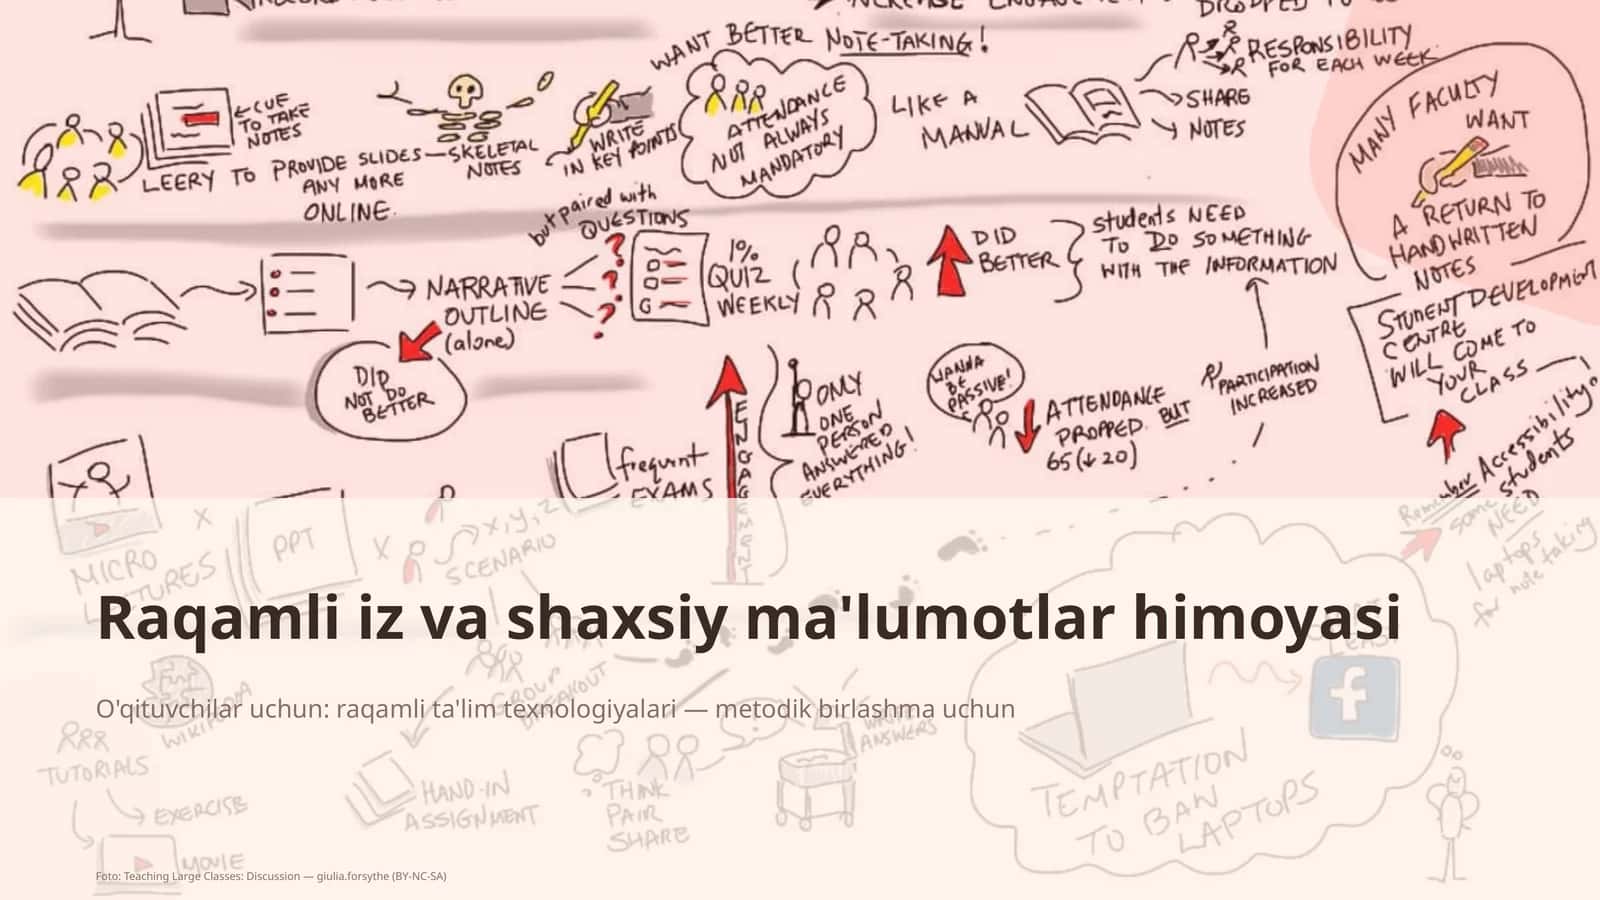 INCREASE ENGAGEMENT
DROPPED TO
WANT BETTER NOTE-TAKING!
RESPONSIBILITY
FOR EACH WEEK
←CUE
TO TAKE
NOTES
LEERY TO PROVIDE SLIDES—SKELETAL
NOTES
ANY MORE
ONLINE.
WRITE
IN KEY POINTS
ATTENDANCE
NOT ALWAYS
MANDATORY
LIKE A
MANUAL
SHARE
NOTES
MANY FACULTY
WANT
A RETURN TO
HANDWRITTEN
NOTES
but paired with
QUESTIONS
NARRATIVE
OUTLINE
(alone)
1%
QUIZ
WEEKLY
DID
BETTER
students NEED
TO DO SOMETHING
WITH THE INFORMATION
STUDENT DEVELOPMENT
CENTRE
WILL COME TO
YOUR
CLASS
DID
NOT DO
BETTER
frequent
EXAMS
ENGAGEMENT
ONLY
ONE
PERSON
ANSWERED
EVERYTHING!
WANNA
BE
PASSIVE!
ATTENDANCE
DROPPED. BUT
65(↓20)
PARTICIPATION
INCREASED
Remember Accessibility
some students
NEED
laptops
for note taking
MICRO
LECTURES
X
PPT
X
x,y,z
SCENARIO
Raqamli iz va shaxsiy ma'lumotlar himoyasi
O'qituvchilar uchun: raqamli ta'lim texnologiyalari — metodik birlashma uchun
WIKIPEDIA
GROUP
BREAKOUT
WRITE
ANSWERS
TUTORIALS
EXERCISE
MOVIE
HAND-IN
ASSIGNMENT
THINK
PAIR
SHARE
f
TEMPTATION
TO BAN
LAPTOPS
Foto: Teaching Large Classes: Discussion — giulia.forsythe (BY-NC-SA)